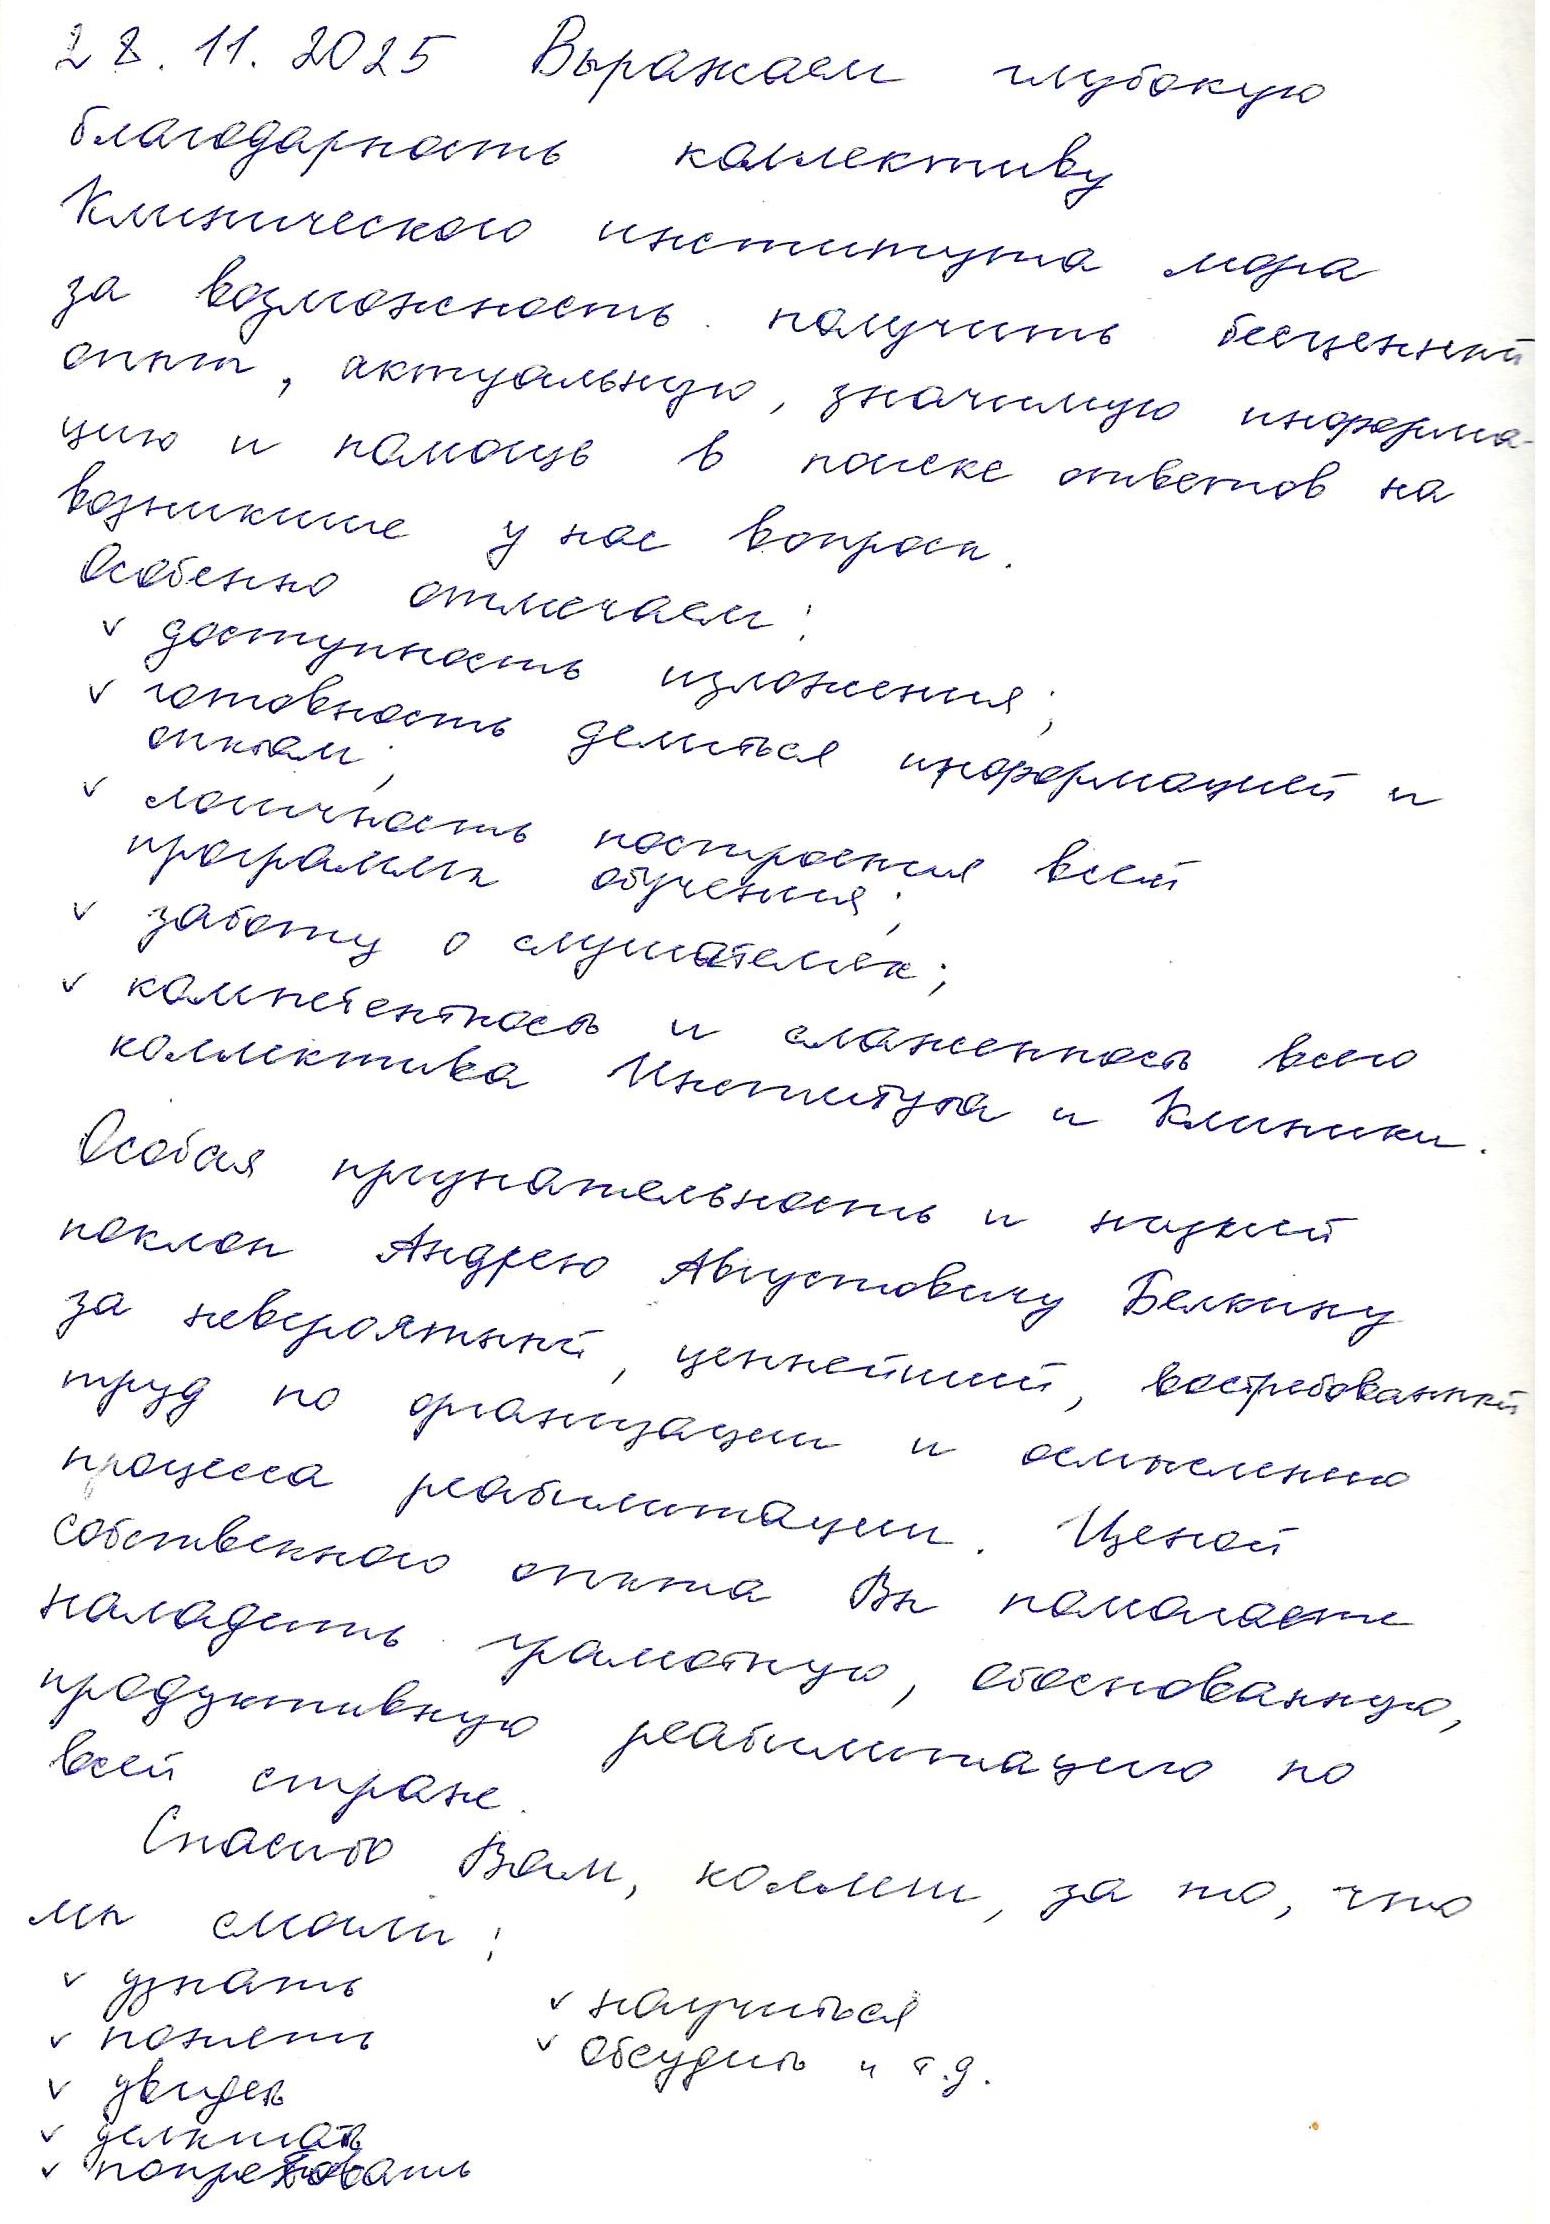 28.11.2025 Выражаем глубокую
благодарность коллективу
Клинического института мозга
за возможность получить бесценный
опыт, актуальную, значимую информа-
цию и помощь в поиске ответов на
возникшие у нас вопросы.
Особенно отмечаем:
✓ доступность изложения;
✓ готовность делиться информацией и
опытом;
✓ логичность построения всей
программы обучения;
✓ заботу о слушателях;
✓ компетентность и слаженность всего
коллектива Института и Клиники.
Особая признательность и низкий
поклон Андрею Августовичу Белкину
за невероятный, ценнейший, востребованный
труд по организации и осмыслению
процесса реабилитации. Ценой
собственного опыта Вы помогаете
наладить грамотную, обоснованную,
продуктивную реабилитацию по
всей стране.
Спасибо Вам, коллеги, за то, что
мы смогли:
✓ узнать ✓ научиться
✓ понять ✓ обсудить и т.д.
✓ увидеть
✓
✓ попробовать